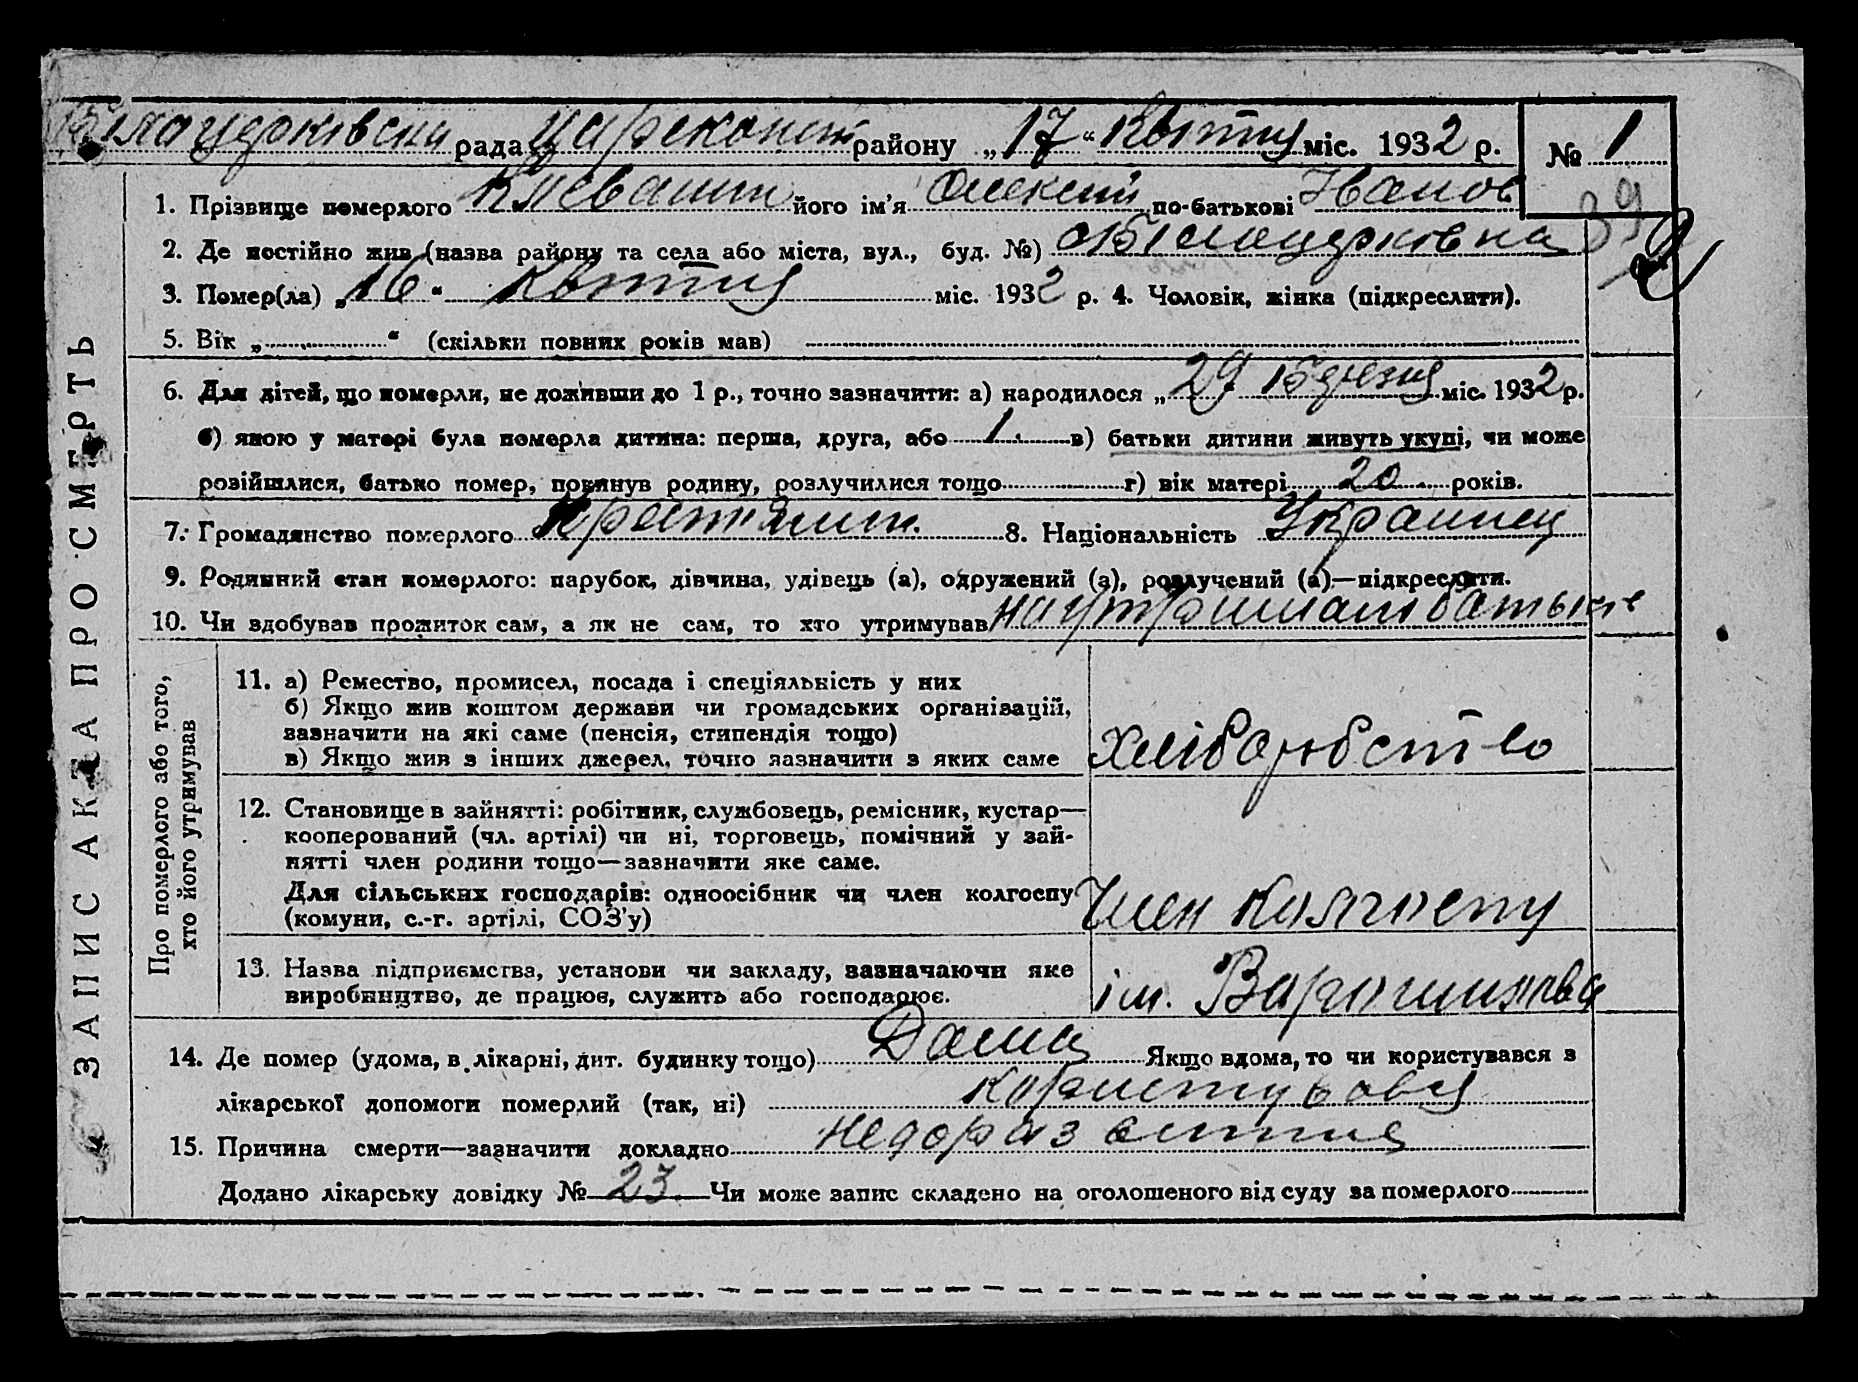 Білоцерківська рада Царекон району „17“ Квітня міс. 1932 р. № 1
39
1. Прізвище померлого його ім'я Олексій по-батькові Іванов
2. Де постійно жив (назва району та села або міста, вул., буд. №) Білоцерковка
3. Помер(ла) „16“ Квітня міс. 1932 р. 4. Чоловік, жінка (підкреслити).
5. Вік „ “ (скільки повних років мав)
6. Для дітей, що померли, не доживши до 1 р., точно зазначити: а) народилося „29 Березня міс. 1932 р.
б) якою у матері була померла дитина: перша, друга, або 1. в) батьки дитини живуть укупі, чи може
розійшлися, батько помер, покинув родину, розлучилися тощо г) вік матері 20 років.
7. Громадянство померлого 8. Національність Украинец
9. Родинний стан померлого: парубок, дівчина, удівець (а), одружений (а), розлучений (а)—підкреслити.
10. Чи здобував прожиток сам, а як не сам, то хто утримував на утримані батьків
ЗАПИС АКТА ПРО СМЕРТЬ
Про померлого або того,
хто його утримував
11. а) Ремество, промисел, посада і спеціяльність у них
б) Якщо жив коштом держави чи громадських організацій,
зазначити на які саме (пенсія, стипендія тощо)
в) Якщо жив з інших джерел, точно зазначити з яких саме
хліборобство
12. Становище в зайнятті: робітник, службовець, ремісник, кустар—
кооперований (чл. артілі) чи ні, торговець, помічний у зай-
нятті член родини тощо—зазначити яке саме.
Для сільських господарів: одноосібник чи член колгоспу
(комуни, с.-г. артілі, СОЗ'у)
Член колгоспу
13. Назва підприємства, установи чи закладу, зазначаючи яке
виробництво, де працює, служить або господарює.
ім. Варошилова
14. Де помер (удома, в лікарні, дит. будинку тощо) Дома Якщо вдома, то чи користувався з
лікарської допомоги померлий (так, ні) користувався
15. Причина смерти—зазначити докладно недоразвиття
Додано лікарську довідку № 23 Чи може запис складено на оголошеного від суду за померлого